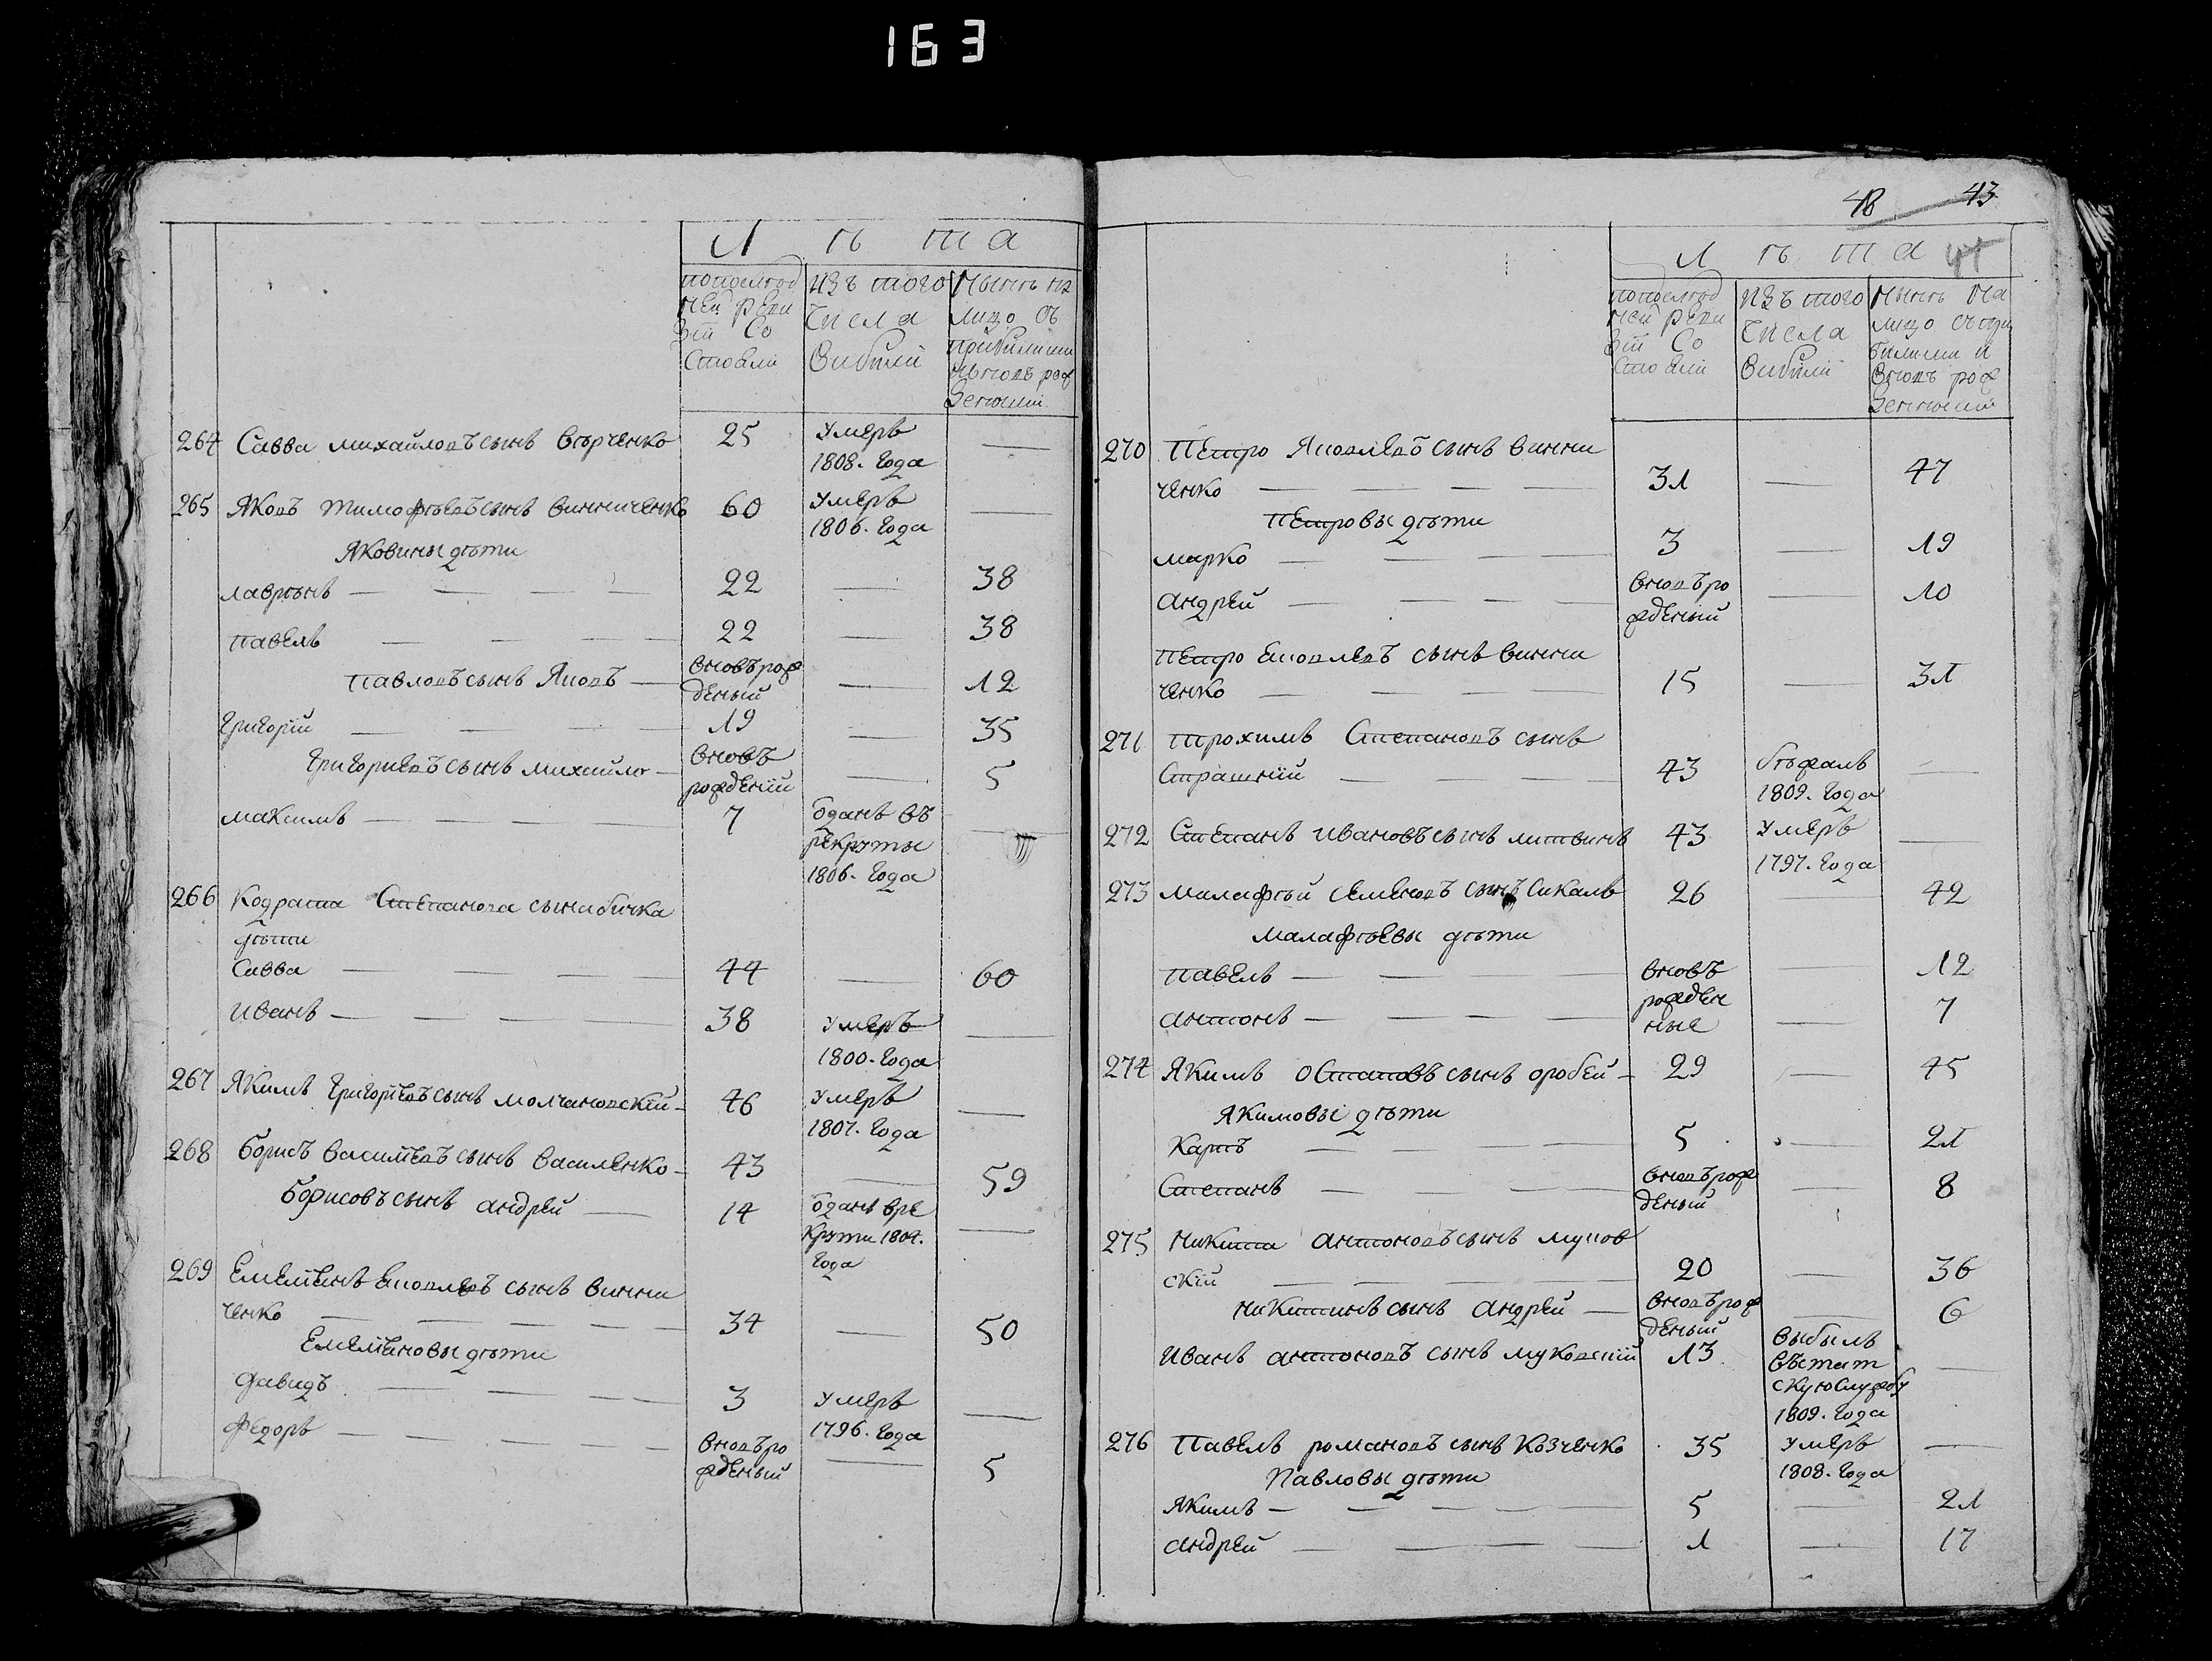 163
Л ѣ т а
попослѣд
ней реви
зіи Со
стояли
изъ того
числа
выбыли
Нынѣ на
лицо съ
прибылими
264 Савва михайловъ сынъ вѣрченко 25 Умеръ —
1808. Года
265 Яковъ тимофѣевъ сынъ винниченко 60 Умеръ —
1806. Года
Яковины дѣти
лаврѣнъ — — — — 22 — 38
павелъ — — — — 22 — 38
павловъ сынъ Яковъ — вновърож — 12
деный
григорій — — — — 19 — 35
григориевъ сынъ михайло — вновъ — 5
рожденій
максимъ — — — — 7 одднъ въ —
рекруты
1806. Года
266 Кодрата Степанова сына бичка
дѣти
Савва — — — 44 — 60
Иванъ — — — — 38 Умеръ —
1800. Года
267 Якимъ григориевъ сынъ молчановскій — 46 Умеръ —
1807. Года
268 борисъ василіевъ сынъ василенко — 43 — 59
борисовъ сынъ андрей — 14 оданъ вре —
крути 1804.
Года
269 Емеліянъ яковлевъ сынъ винни
ченко — — — — 34 — 50
Емеліяновы дѣти
давидъ — — — — 3 Умеръ —
1796. Года
федоръ — — — — вновъро — 5
жденый
48 43
Л ѣ т а 41
попослѣд
ней реви
зіи Со
стояли
изъ того
числа
выбыли
Нынѣ На
лицо съ при
билими и
вновъ рож
270 Петро Яковлевъ сынъ винни
ченко — — — — 31 — 47
петровы дѣти
марко — — — — 3 — 19
андрей — — — — вновъро — 10
жденый
петро яковлевъ сынъ винни
ченко — — — 15 — 31
271 трохимъ Степановъ сынъ
Страшній — — 43 бѣжалъ —
1809. Года
272 Степанъ ивановъ сынъ литвинъ 43 Умеръ —
1797. Года
273 малафѣй семеновъ сынъ сикалъ 26 — 42
малафѣевы дѣти
павелъ — — — вновъ — 12
рожден
антонъ — — — — ные — 7
274 Якимъ остаповъ сынъ оробей — 29 — 45
Якимовы дѣти
Карпъ — — — — 5 — 21
Степанъ — — — — вновърож — 8
деный
275 Никита антоновъ сынъ муков
скій — — — — 20 — 36
никитинъ сынъ андрей — вновърож — 6
деный
Иванъ антоновъ сынъ муковскій 13 выбылъ —
въстат
скуюслужбу
1809. Года
276 Павелъ романовъ сынъ козченко 35 Умеръ —
1808. Года
Павловы дѣти
Якимъ — — — — 5 — 21
андрей — — — 1 — 17